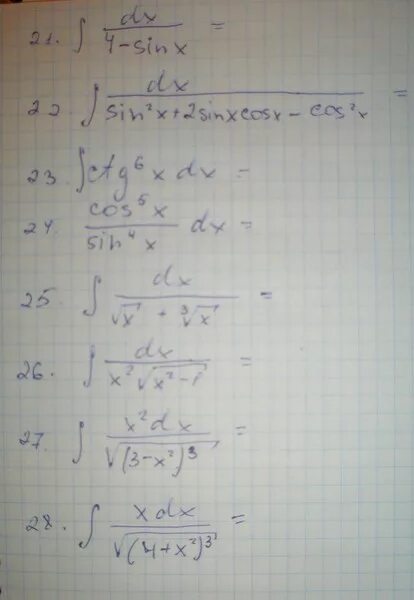 21. ∫ dx / (4 - sin x) =
22. ∫ dx / (sin²x + 2sinxcosx - cos²x) =
23. ∫ctg⁶ x dx =
24. cos⁵x / sin⁴x dx =
25. ∫ dx / (√x + ³√x) =
26. ∫ dx / (x²√(x²-1)) =
27. ∫ x²dx / √(3-x²)³ =
28. ∫ xdx / √(4+x²)³ =